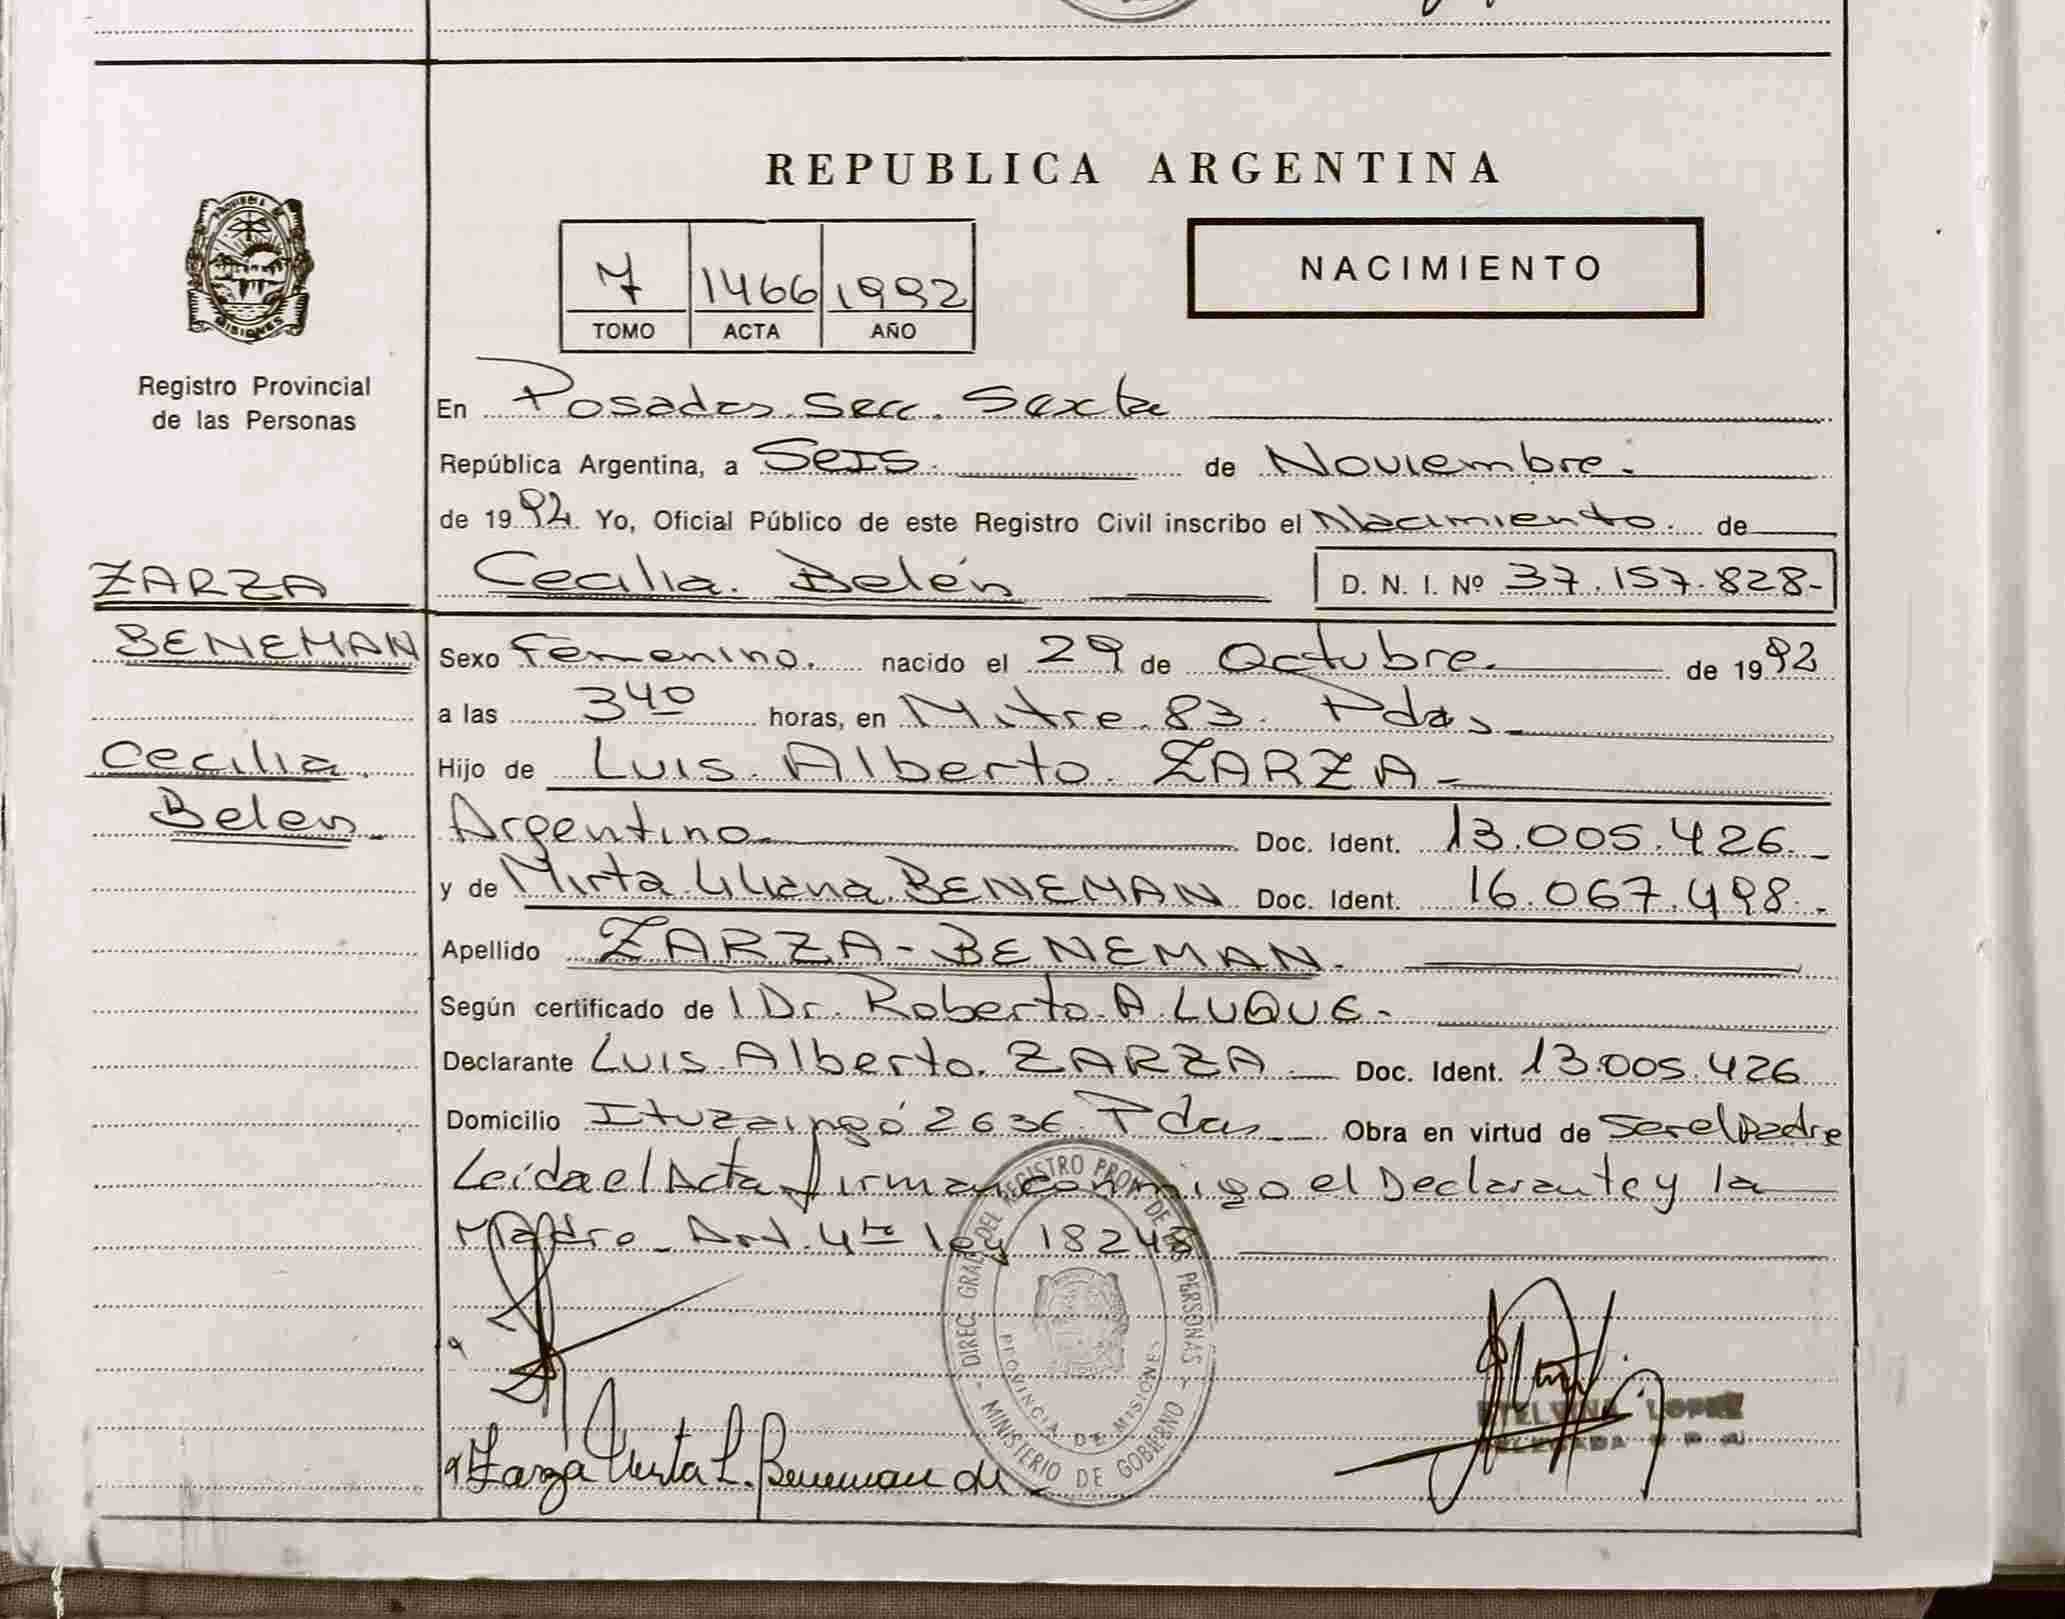 REPUBLICA ARGENTINA
PROVINCIA DE
MISIONES
Registro Provincial
de las Personas
7 1466 1992
TOMO ACTA AÑO
NACIMIENTO
En Posadas Secc. Sexta
República Argentina, a Seis. de Noviembre.
de 1992. Yo, Oficial Público de este Registro Civil inscribo el Nacimiento. de
ZARZA
Cecilia. Belén D. N. I. Nº 37.157.828-
BENEMAN
Sexo Femenino. nacido el 29 de Octubre. de 1992
a las 3 40 horas, en Mitre. 83. Pdas
Cecilia.
Hijo de Luis. Alberto. ZARZA-
Belen-
Argentino Doc. Ident. 13.005.426.-
y de Mirta Liliana. BENEMAN Doc. Ident. 16.067.498.-
Apellido ZARZA-BENEMAN.
Según certificado de l Dr. Roberto. A. LUQUE-
Declarante Luis. Alberto. ZARZA- Doc. Ident. 13.005.426
Domicilio Ituzaingó 2636 Pdas Obra en virtud de Ser el Padre
Leída el Acta firman conmigo el Declarante y la
Madre- Art. 4to ley 18248
DIREC. GRAL DEL REGISTRO PROV. DE LAS PERSONAS
PROVINCIA DE MISIONES
- MINISTERIO DE GOBIERNO -
ETELVINA LOPEZ
DELEGADA
Zarza Mirta L. Beneman de